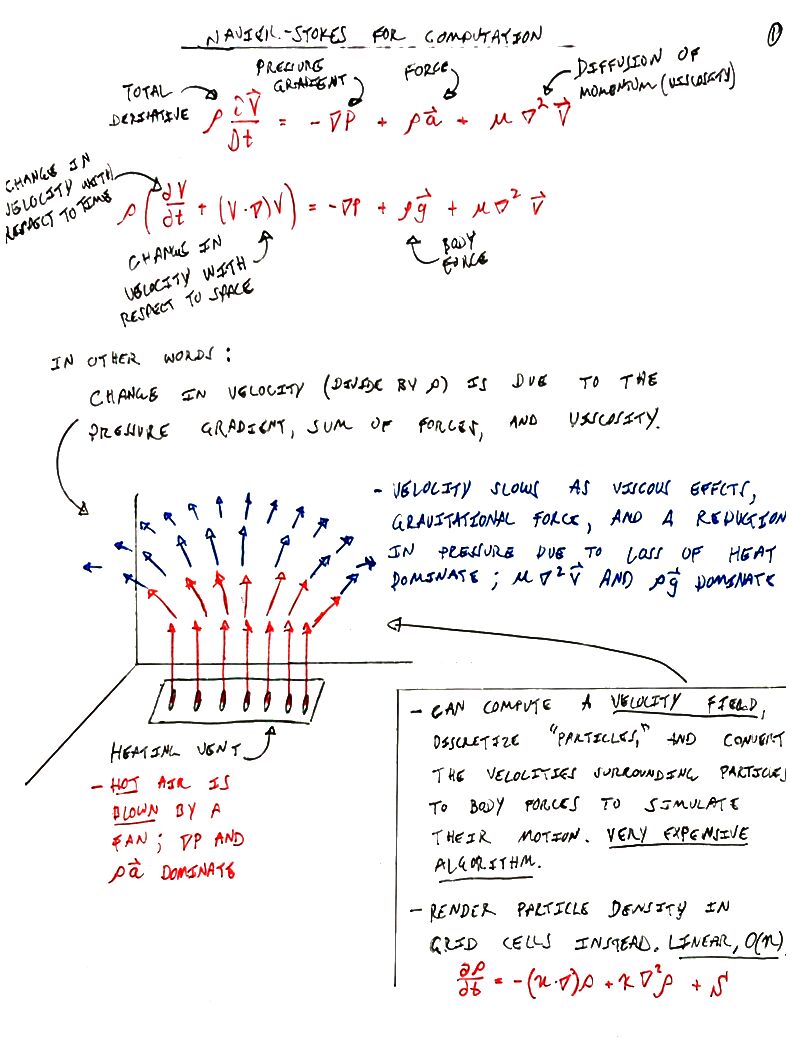 NAVIER-STOKES FOR COMPUTATION
1
PRESSURE
GRADIENT
FORCE
DIFFUSION OF
MOMENTUM (VISCOSITY)
TOTAL
DERIVATIVE
ρ DV⃗/Dt = -∇P + ρa⃗ + μ∇²V⃗
CHANGE IN
VELOCITY WITH
RESPECT TO TIME
ρ(∂V/∂t + (V·∇)V) = -∇P + ρg⃗ + μ∇²V⃗
CHANGE IN
VELOCITY WITH
RESPECT TO SPACE
BODY
FORCE
IN OTHER WORDS:
CHANGE IN VELOCITY (DIVIDE BY ρ) IS DUE TO THE
PRESSURE GRADIENT, SUM OF FORCES, AND VISCOSITY.
- VELOCITY SLOWS AS VISCOUS EFFCTS,
GRAVITATIONAL FORCE, AND A REDUCTION
IN PRESSURE DUE TO LOSS OF HEAT
DOMINATE; μ∇²V⃗ AND ρg⃗ DOMINATE
HEATING VENT
- HOT AIR IS
BLOWN BY A
FAN; ∇P AND
ρa⃗ DOMINATE
- CAN COMPUTE A VELOCITY FIELD,
DISCRETIZE "PARTICLES," AND CONVERT
THE VELOCITIES SURROUNDING PARTICLES
TO BODY FORCES TO SIMULATE
THEIR MOTION. VERY EXPENSIVE
ALGORITHM.
- RENDER PARTICLE DENSITY IN
GRID CELLS INSTEAD. LINEAR, O(n).
∂ρ/∂t = -(u·∇)ρ + κ∇²ρ + S